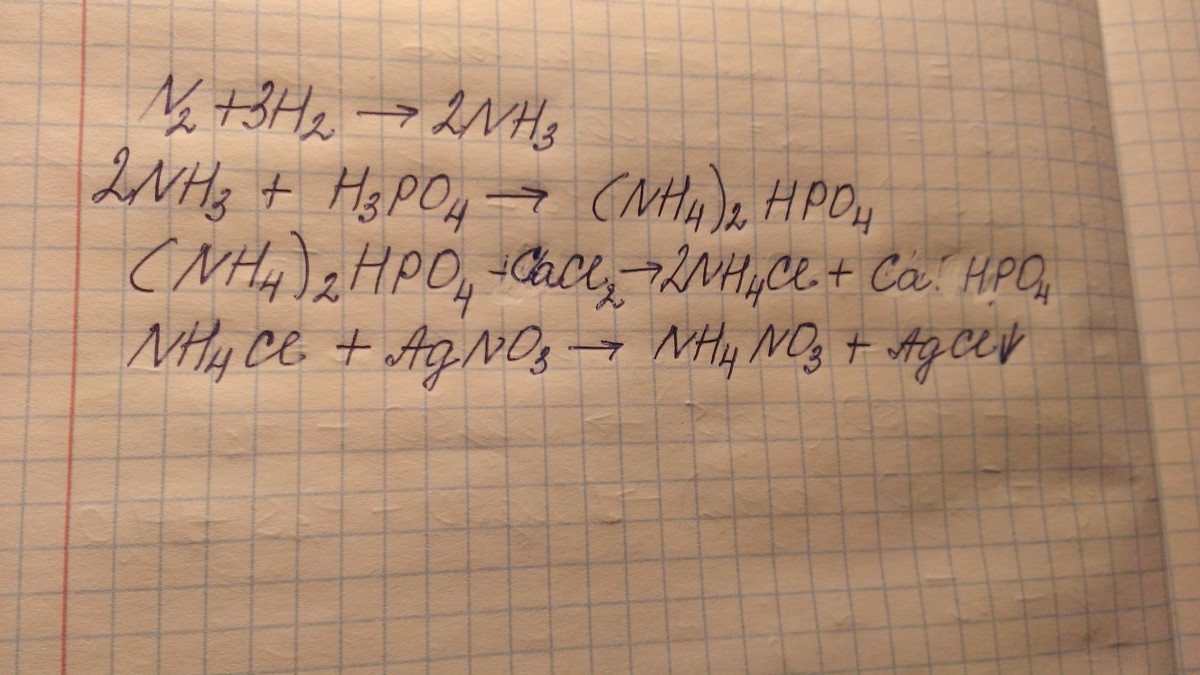 N₂ + 3H₂ → 2NH₃
2NH₃ + H₃PO₄ → (NH₄)₂ HPO₄
(NH₄)₂HPO₄ + CaCl₂ → 2NH₄Cl + Ca HPO₄
NH₄Cl + AgNO₃ → NH₄NO₃ + AgCl↓